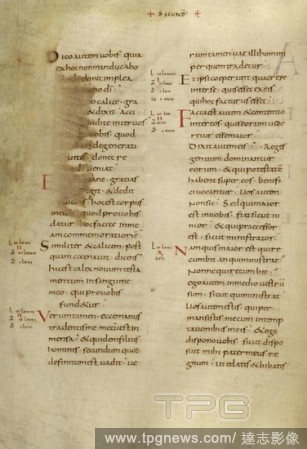 Dico autem uobis quia
ex hoc non manducabo
donec implea
calice gra
& dixit acci
inter uos
uobis quod
degenerati
donec re
gratias
& dedit
hoc est corpus
meum quod pro uobis
datur hoc facite in me
am commemorationem
Similiter & calicem post
quam cenauit dicens
hic est calix nouum testa
mentum in sanguine
meo qui pro uobis
fund&ur
Uerumtamen ecce manus
tradentis me mecum est in
mensa & quidem filius
hominis secundum quod
definitum est uadit ue
rumtamen uae illi homini
per quem tradetur
Et ipsi coeperunt quaerere
inter se quis esset ex eis
qui hoc facturus esset
Facta est autem & contentio
inter eos quis eorum uide
retur esse maior
Dixit autem eis Reges
gentium dominantur
eorum & qui potestatem
habent super eos benefi
ci uocantur Uos autem
non sic Sed qui maior
est in uobis fiat sicut iu
nior & qui praecessor
est sicut ministrator
Nam quis maior est qui re
cumbit an qui ministrat
Nonne qui recumbit
ego autem in medio uestru
sum sicut qui ministrat
Uos autem estis qui per
mansistis mecum in temp
tationibus meis & ego
dispono uobis sicut dispo
suit mihi pater meus reg
num ut edatis & bibatis
TPG
www.tpgnews.com/ 達志影像